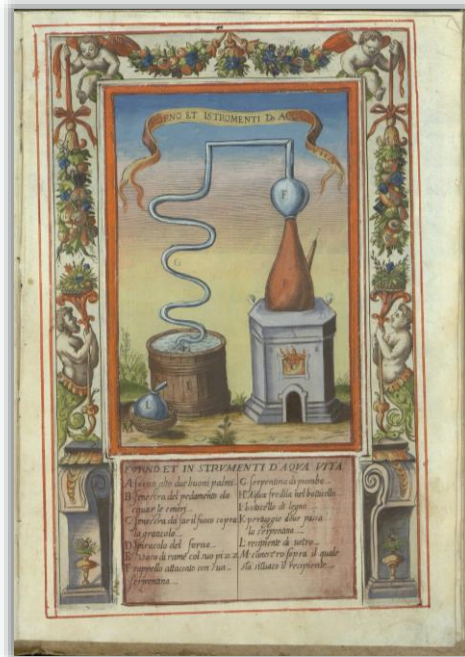 FORNO ET ISTROMENTI D'AC
G
F
L
FORNO, ET IN STRVMENTI D'AQVA VITA
A forno alto due buoni palmi
B finestra del pedamento da
cauar le ceneri
C finestra da far il fuoco sopra
la graticola
D spiracolo del forno
E Vaso di rame col suo
F cappello attaccato con l'un
serpentina
G serpentina di piombo
H Aqua fredda nel batticello
I batticello di legno
K pertuggio dove passa
la serpentina
L recipiente di vetro
M sopra il quale
sta situato il recipiente